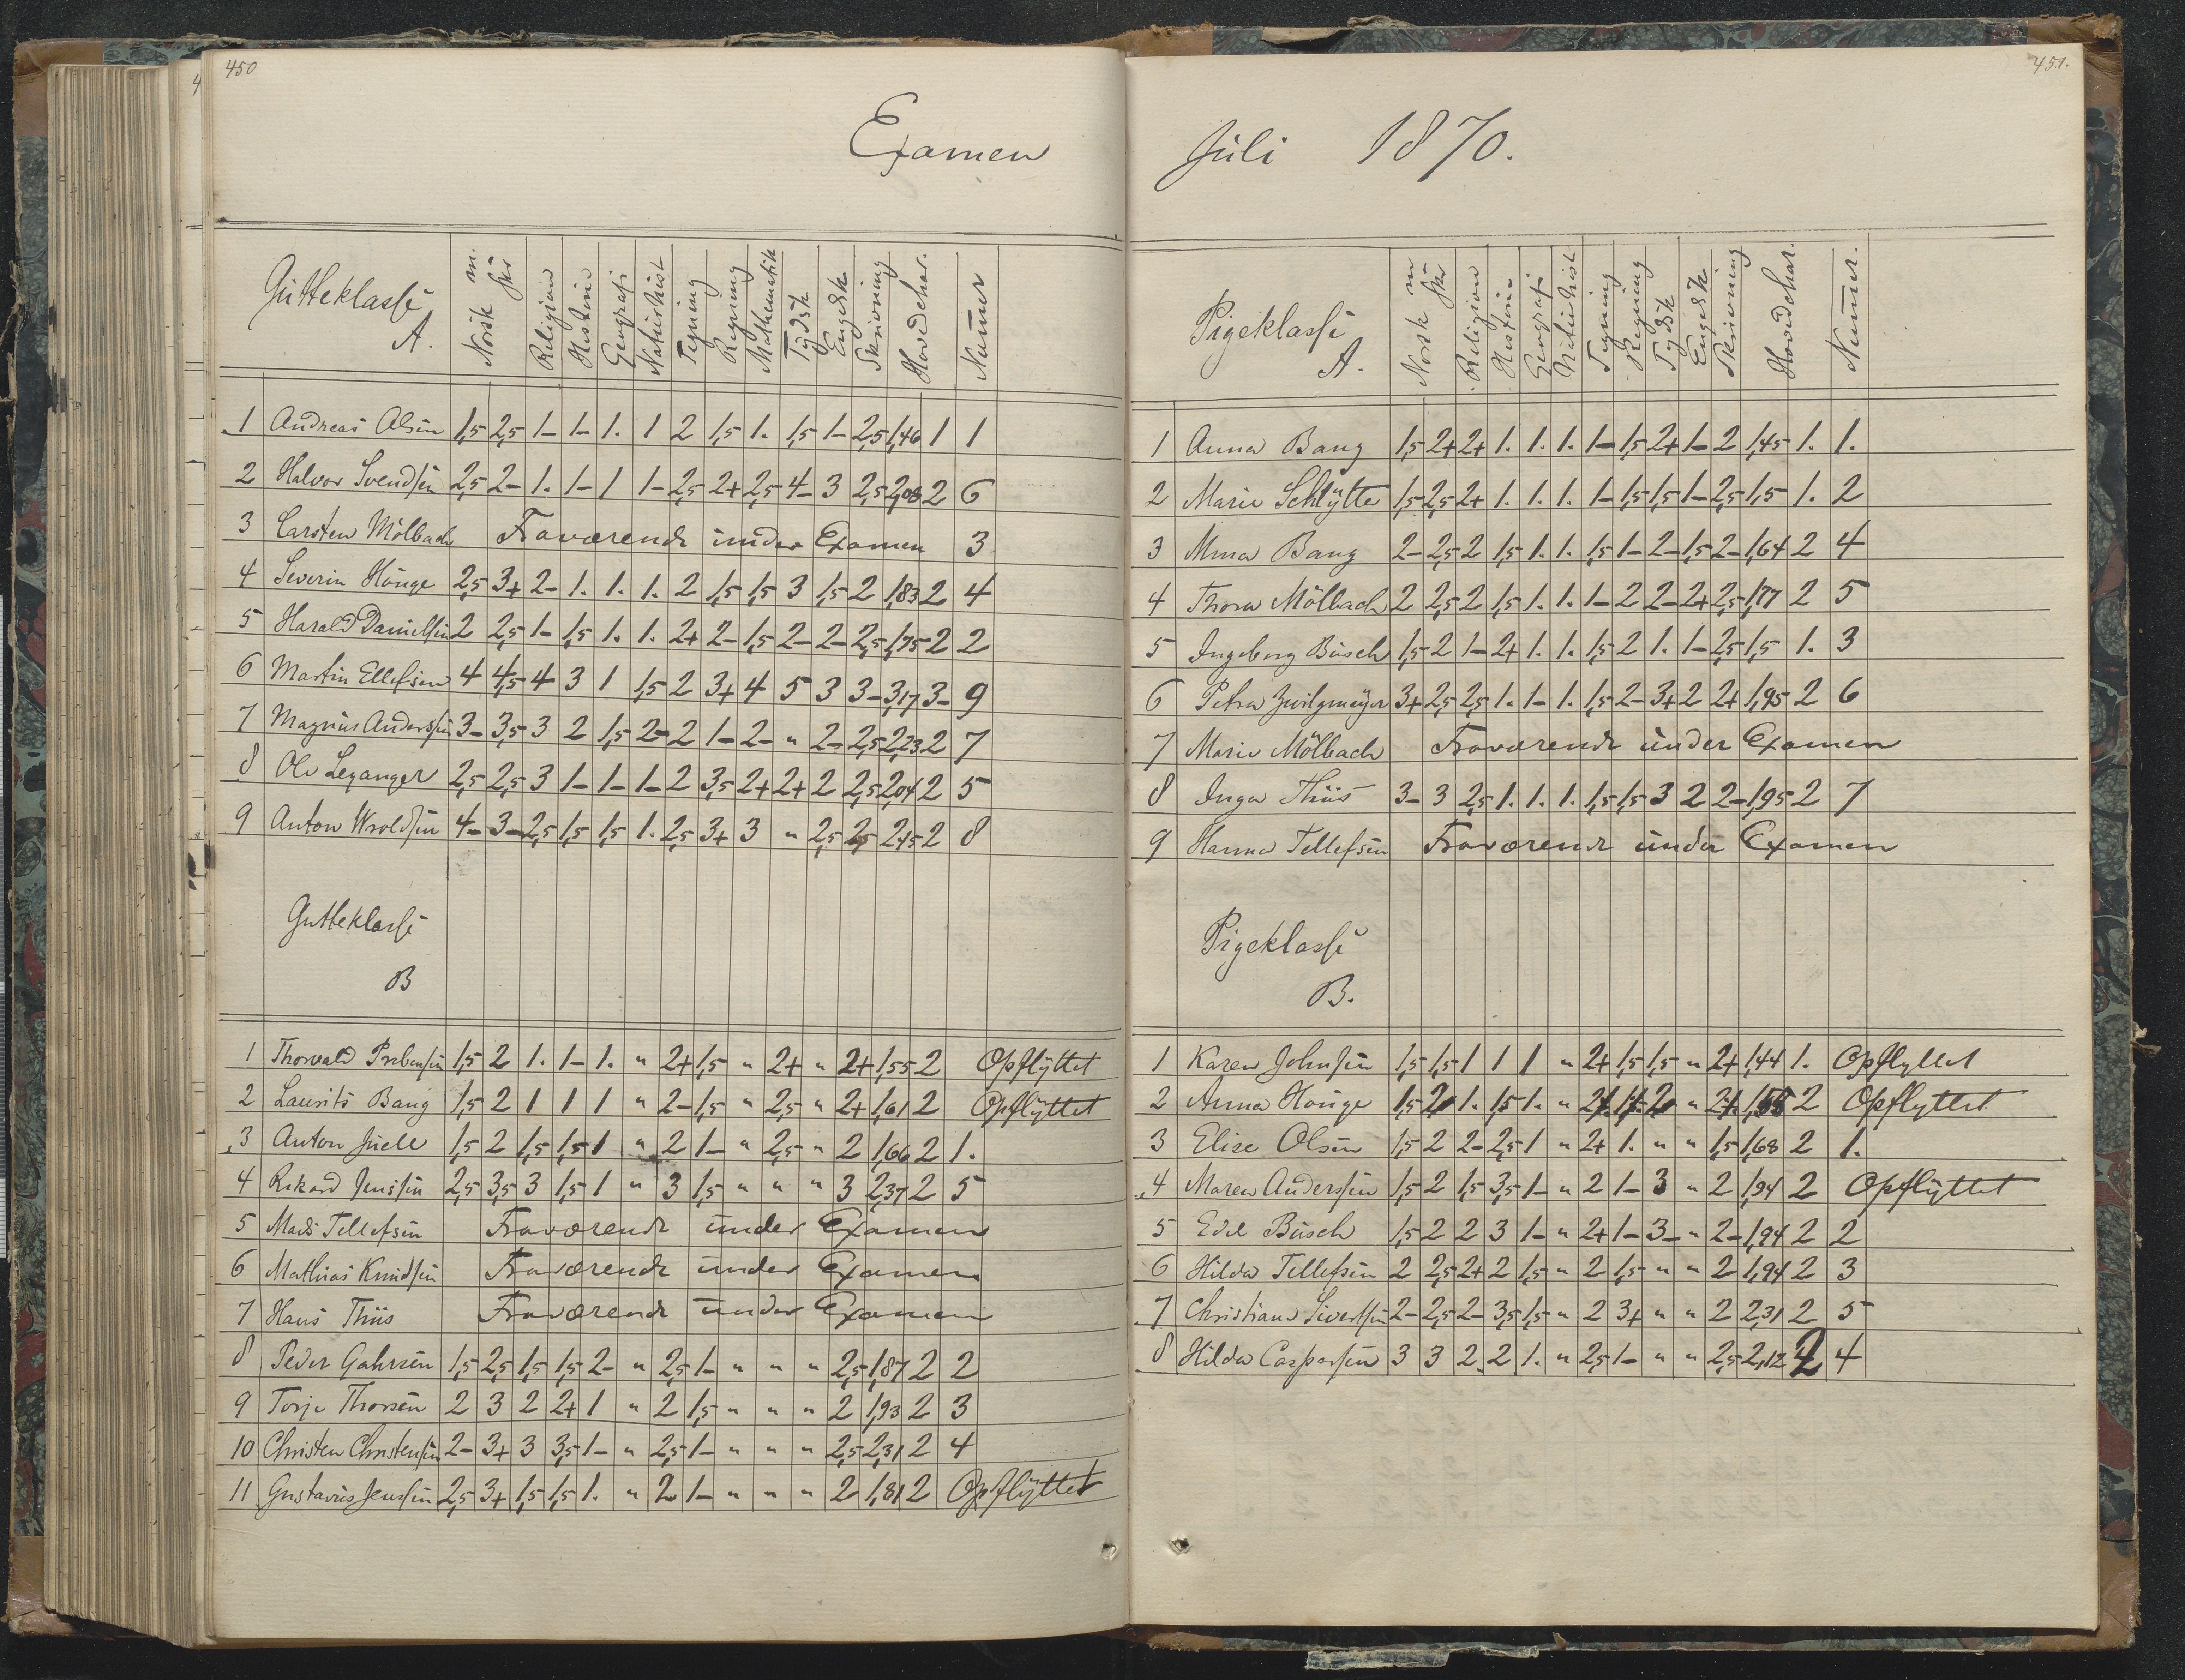 450
Examen
Gutteklasse
A.
Norsk m. skr Religion Historie Geografi Naturhist Tegning Regning Mathematik Tydsk Engelsk Skrivning Hovedchar. Numer
1 Andreas Olsen 1,5 2,5 1- 1- 1. 1 2 1,5 1. 1,5 1- 2,5 1,46 1 1
2 Halvor Svendsen 2,5 2- 1. 1- 1 1- 2,5 2+ 2,5 4- 3 2,5 2,08 2 6
3 Carsten Mölbach Fraværende under Examen 3
4 Severin Houge 2,5 3+ 2- 1. 1. 1. 2 1,5 1,5 3 1,5 2 1,83 2 4
5 Harald Danielsen 2 2,5 1- 1,5 1. 1. 2+ 2- 1,5 2- 2- 2,5 1,75 2 2
6 Martin Ellefsen 4 4,5 4 3 1 1,5 2 3+ 4 5 3 3- 3,17 3- 9
7 Magnus Andersen 3- 3,5 3 2 1,5 2- 2 1- 2- " 2- 2,5 2,23 2 7
8 Ole Leganger 2,5 2,5 3 1- 1- 1- 2 3,5 2+ 2+ 2 2,5 2,04 2 5
9 Anton Wroldsen 4- 3- 2,5 1,5 1,5 1. 2,5 3+ 3 " 2,5 2,5 2,45 2 8
Gutteklasse
B
1 Thorvald Prebensen 1,5 2 1. 1- 1. " 2+ 1,5 " 2+ " 2+ 1,55 2 Opflyttet
2 Laurits Bang 1,5 2 1 1 1 " 2- 1,5 " 2,5 " 2+ 1,61 2 Opflyttet
3 Anton Juell 1,5 2 1,5 1,5 1 " 2 1- " 2,5 " 2 1,66 2 1.
4 Rikard Jenssen 2,5 3,5 3 1,5 1 " 3 1,5 " " " 3 2,37 2 5
5 Mads Tellefsen Fraværende under Examen
6 Mathias Knudsen Fraværende under Examen
7 Hans Thiis Fraværende under Examen
8 Peder Gahrsen 1,5 2,5 1,5 1,5 2- " 2,5 1- " " " 2,5 1,87 2 2
9 Torje Thorsen 2 3 2 2+ 1 " 2 1,5 " " " 2 1,93 2 3
10 Christen Christensen 2- 3+ 3 3,5 1- " 2,5 1- " " " 2,5 2,31 2 4
11 Gustavus Jensen 2,5 3+ 1,5 1,5 1. " 2 1- " " " 2 1,81 2 Opflyttet
451.
Juli 1870.
Pigeklasse
A.
Norsk m skr Religion Historie Geografi Naturhist Tegning Regning Tydsk Engelsk Skrivning Hovedchar. Numer.
1 Anna Bang 1,5 2+ 2+ 1. 1. 1. 1- 1,5 2+ 1- 2 1,45 1. 1.
2 Marie Schlytter 1,5 2,5 2+ 1. 1. 1. 1- 1,5 1,5 1- 2,5 1,5 1. 2
3 Mina Bang 2- 2,5 2 1,5 1. 1. 1,5 1- 2- 1,5 2- 1,64 2 4
4 Thora Mölbach 2 2,5 2 1,5 1. 1. 1- 2 2- 2+ 2,5 1,77 2 5
5 Ingeborg Busch 1,5 2 1- 2+ 1. 1. 1,5 2 1. 1- 2,5 1,5 1. 3
6 Petra Zwilgmeyer 3+ 2,5 2,5 1. 1- 1. 1,5 2- 3+ 2 2+ 1,95 2 6
7 Marie Mölbach Fraværende under Examen
8 Inga Thiis 3- 3 2,5 1. 1. 1. 1,5 1,5 3 2 2- 1,95 2 7
9 Hanna Tellefsen Fraværende under Examen
Pigeklasse
B.
1 Karen Johnsen 1,5 1,5 1 1 1 " 2+ 1,5 1,5 " 2+ 1,44 1. Opflyttet
2 Anna Houge 1,5 2 1. 1,5 1. " 2+ 2 " 2+ 2 Opflyttet
3 Elise Olsen 1,5 2 2- 2,5 1 " 2+ 1. " " 1,5 1,68 2 1.
4 Maren Andersen 1,5 2 1,5 3,5 1- " 2 1- 3 " 2 1,94 2 Opflyttet
5 Edle Busch 1,5 2 2 3 1- " 2+ 1- 3- " 2- 1,94 2 2
6 Hilda Tellefsen 2 2,5 2+ 2 1,5 " 2 1,5 " " 2 1,94 2 3
7 Christiane Sivertsen 2- 2,5 2- 3,5 1,5 " 2 3+ " " 2 2,31 2 5
8 Hilda Caspersen 3 3 2 2 1. " 2,5 1- " " 2,5 2,12 2 4